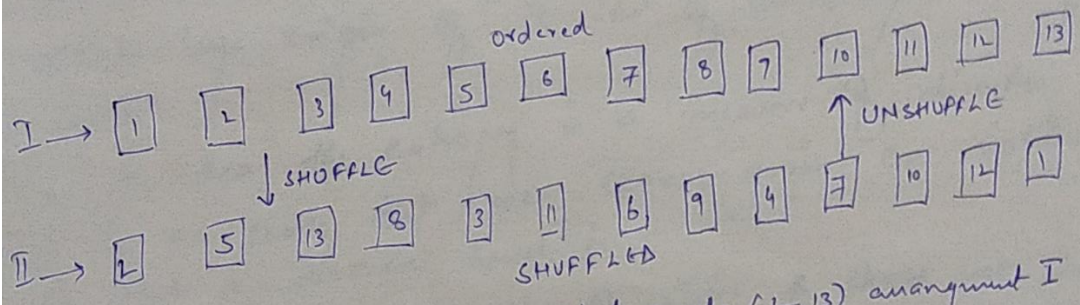 ordered
I → 1 2 3 4 5 6 7 8 9 10 11 12 13
↓ SHUFFLE ↑ UNSHUFFLE
II → 2 5 13 8 3 11 6 9 4 7 10 12 1
SHUFFLED
(1-13) arrangment I